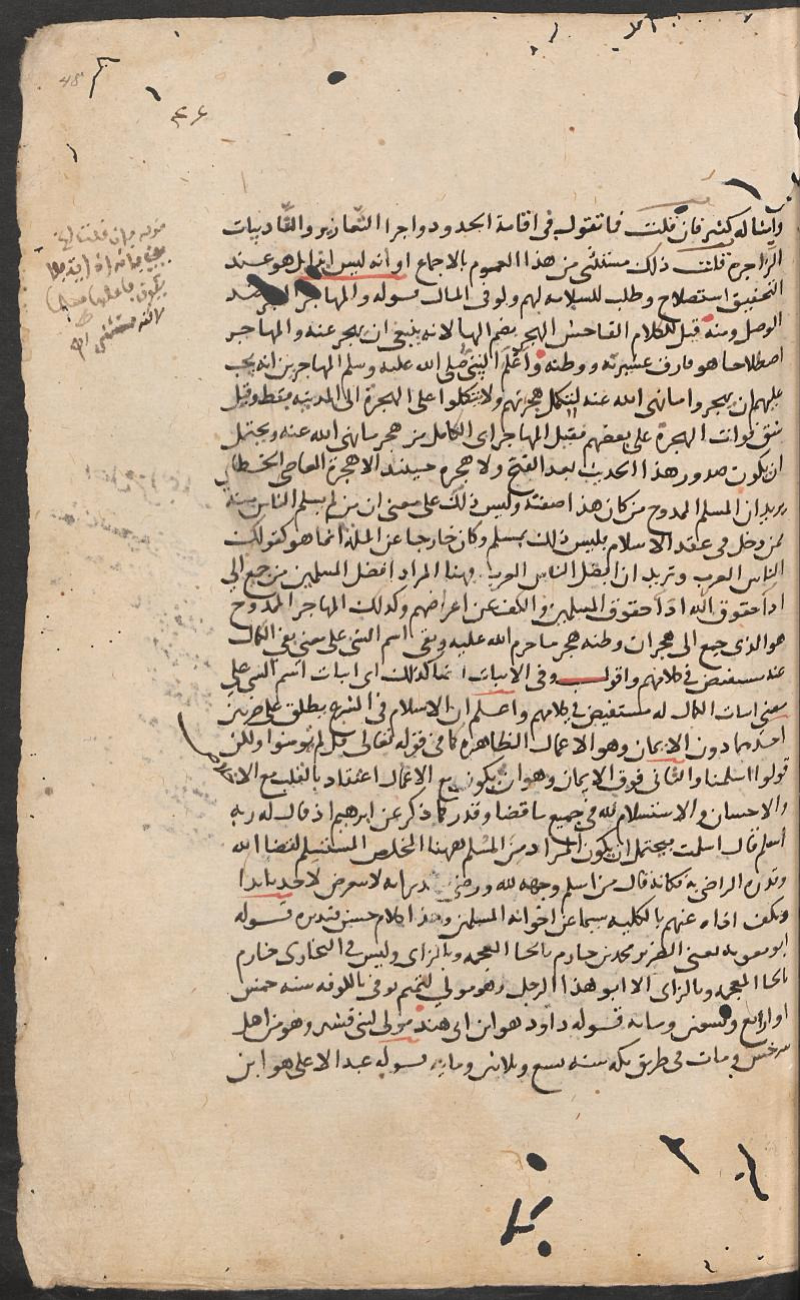 وامثاله كثير فان قلت فما تقول في اقامة الحدود واجرا التعازير والتاديبات
الزاجرة قلت ذلك مستثنى من هذا العموم بالاجماع او انه ليس ايذا بل هو عند
التحقيق استصلاح وطلب للسلامة لهم ولو في المال قوله والمهاجر الهجر ضد
الوصل ومنه قيل للكلام الفاحش الهجر بضم الها لانه ينبغي ان يهجر عنه والمهاجر
اصطلاحا هو مفارق عشيرته ووطنه واعلم النبي صلى الله عليه وسلم المهاجرين انه يجب
عليهم ان يهجروا ما نهى الله عنه لتكمل هجرتهم ولا يتكلوا على الهجرة الى المدينة فقط وقيل
شق فوات الهجرة على بعضهم فقيل المهاجر اى الكامل من هجر ما نهى الله عنه ويحتمل
ان يكون صدور هذا الحديث بعد الفتح ولا هجرة حينئذ الا هجرة المعاصي الخطابي
يريد ان المسلم الممدوح من كان هذا صفته وليس ذلك على معنى ان من لم يسلم الناس منه
ممن دخل في عقد الاسلام فليس ذلك بمسلم وكان خارجا عن الملة انما هو كقولك
الناس العرب وتريد ان افضل الناس العرب فهنا المراد افضل المسلمين من جمع الى
ادا حقوق الله ادا حقوق المسلمين والكف عن اعراضهم وكذلك المهاجر الممدوح
هو الذي جمع الى هجران وطنه هجر ما حرم الله عليه ونفي اسم الشي على معنى نفي الكمال
عنه مستفيض في كلامهم واقول وفي الاثبات ايضا كذلك اى اثبات اسم الشي على
معنى اثبات الكمال له مستفيض في كلامهم واعلم ان الاسلام في الشرع يطلق على ضربين
احدهما دون الايمان وهو الاعمال الظاهرة كما في قوله تعالى قل لم تؤمنوا ولكن
قولوا اسلمنا والثاني فوق الايمان وهو ان يكون مع الاعمال اعتقاد بالقلب مع
والاحسان والاستسلام لله في جميع ما قضا وقدر كما ذكر عن ابرهيم اذ قال له ربه
اسلم قال اسلمت فيحتمل ان يكون المراد من المسلم ههنا المخلص المستسلم لقضا الله
وقدره الراضي به فكانه قال من اسلم وجهه لله ورضي بتقديراته لا يتعرض لاحد بايذا
ويكف اذاه عنهم بالكلية سيما عن اخوانه المسلمين وهذا كلام حسن فتدبره قوله
ابو معوية يعني الضرير محمد بن خازم بالخا المعجمة وبالزاى وليس في البخارى خازم
بالخا المعجمة وبالزاى الا ابو هذا الرجل وهو مولى لتميم توفي بالكوفة سنة خمس
او اربع وتسعين ومايه قوله داود هو ابن ابي هند مولى لبني قشير وهو من اهل
سرخس ومات في طريق مكة سنة تسع وثلاثين ومايه قوله عبد الاعلى هو ابن